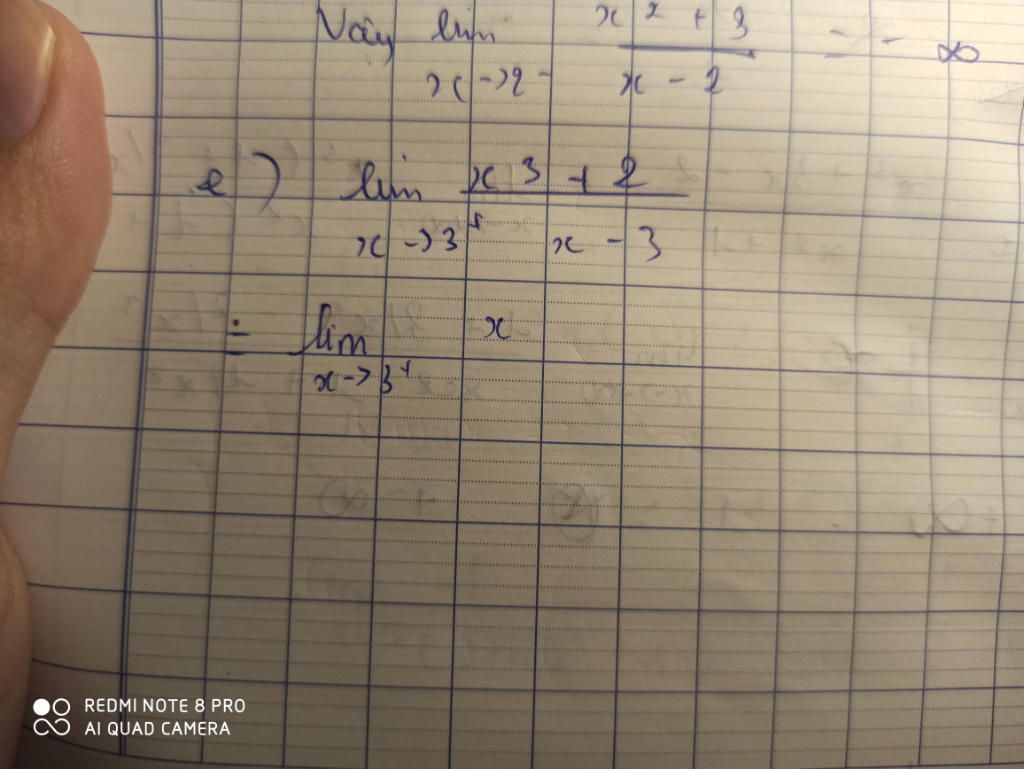 Vậy lim x² + 3 / x - 2 = - ∞
x->2-
e) lim x3 + 2 / x - 3
x->3+
= lim x
x->3+
REDMI NOTE 8 PRO
AI QUAD CAMERA